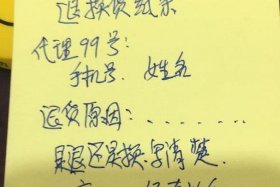 退换货纸条
代理99号:
手机号. 姓名
退货原因:.......
是退还是换.写清楚.